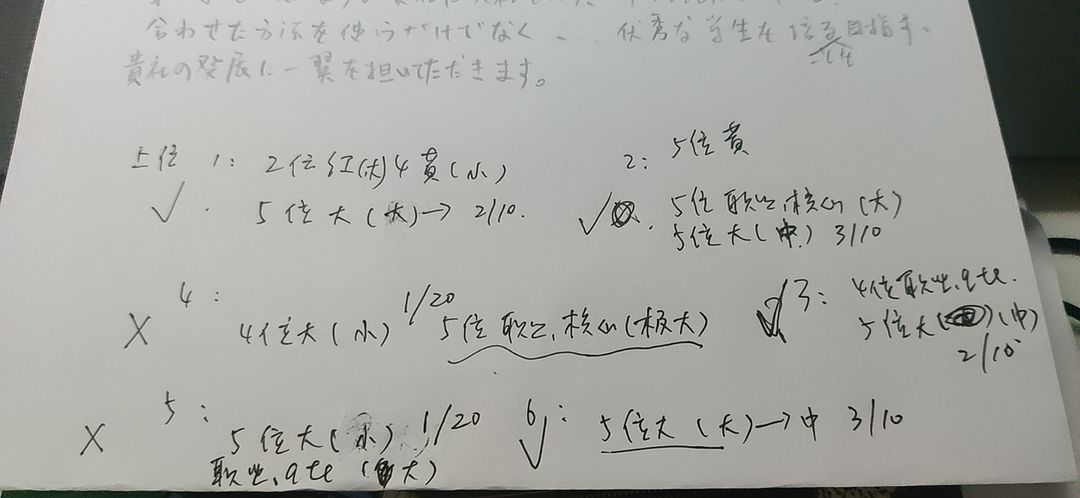 合わせた方法を使うだけでなく 優秀な学生を 目指す、
貴社の発展に一翼を担いただきます。
上位 1: 2位红(大)4黄(小)
✓ . 5位大(大)→ 2/10.
2: 5位黄
✓ . 5位职业,核心(大)
5位大(中) 3/10
X 4: 4位大(小) 1/20 5位职业,核心(极大)
3: 4位职业,qte.
5位大( )(中)
2/10
X 5: 5位大(小) 1/20
职业,qte (大)
6: ✓ 5位大(大)→中 3/10